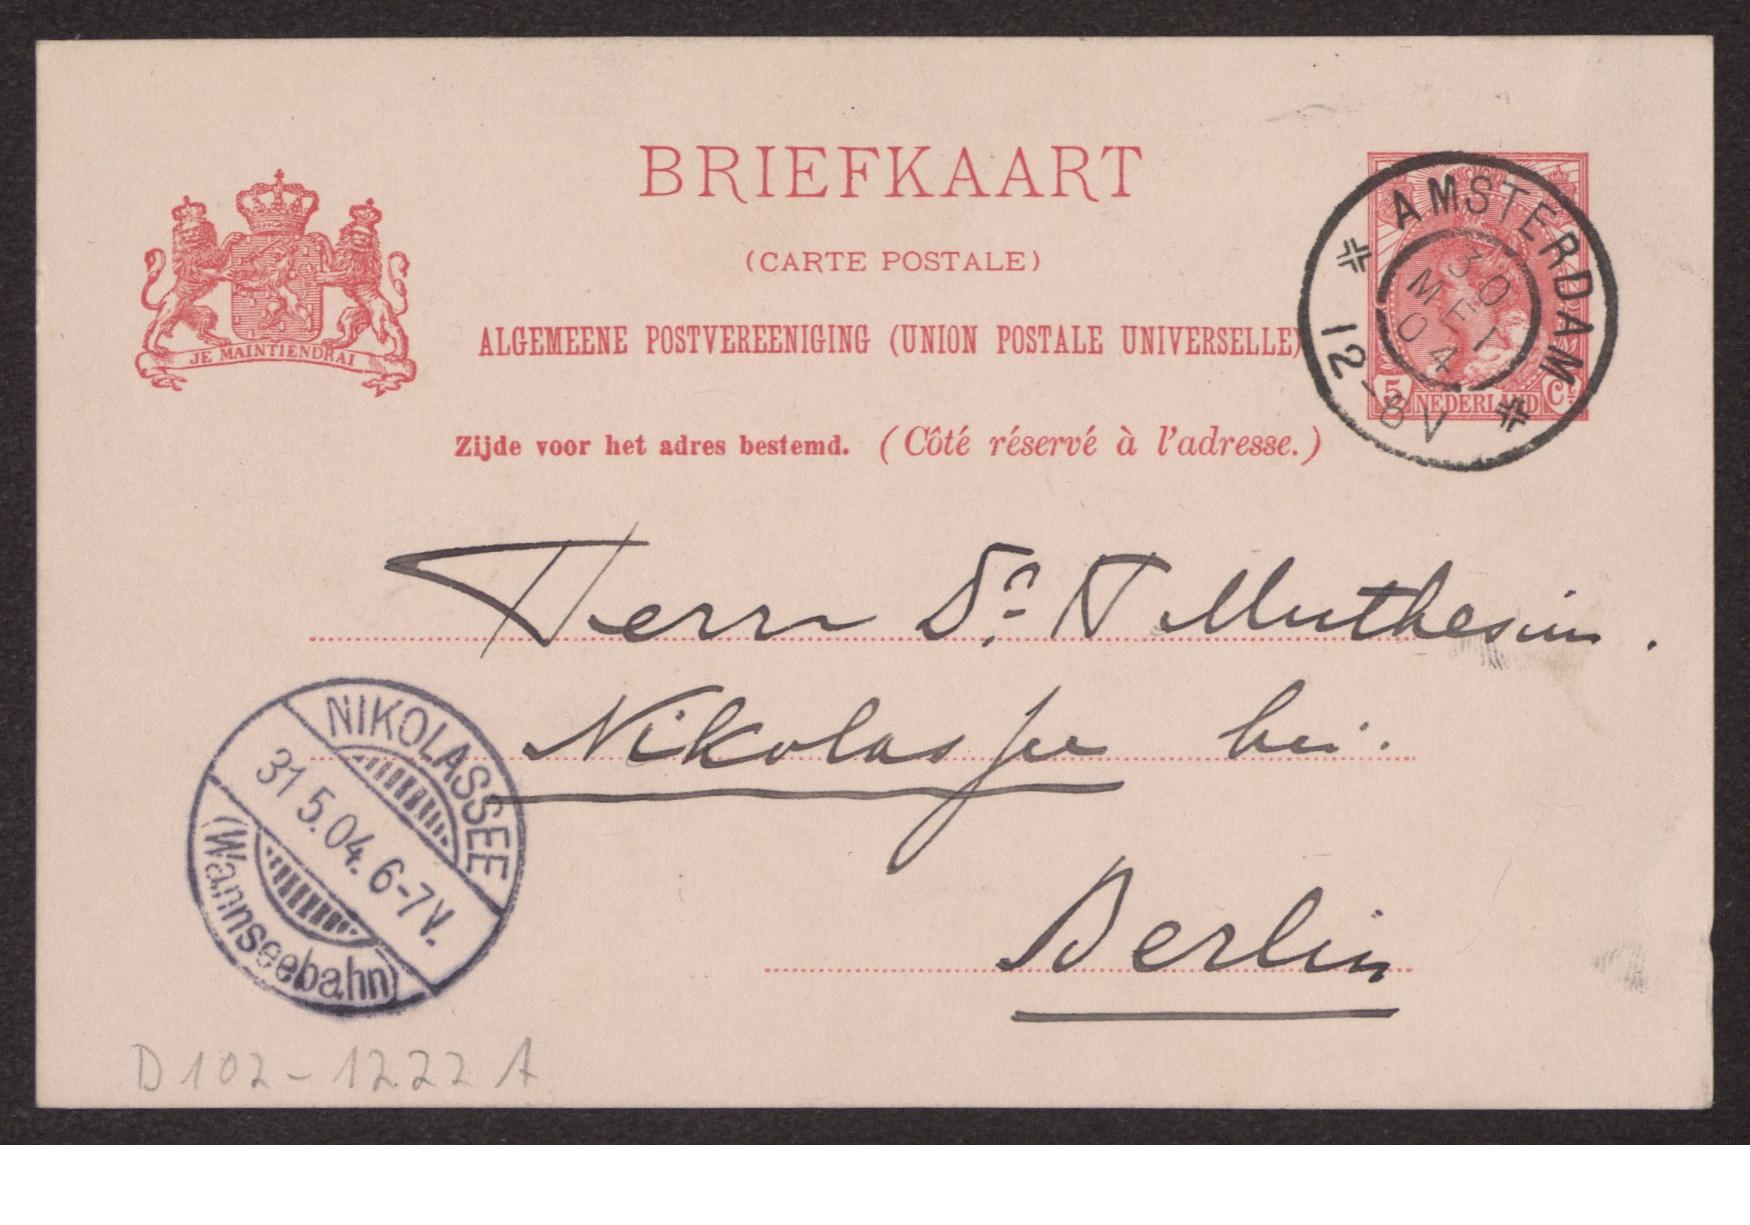 BRIEFKAART
(CARTE POSTALE)
ALGEMEENE POSTVEREENIGING (UNION POSTALE UNIVERSELLE)
Zijde voor het adres bestemd. (Côté réservé à l'adresse.)
JE MAINTIENDRAI
5 NEDERLAND Ct.
AMSTERDAM
30
MEI
04
12-8V
Herrn Dr. H Muthesius.
Nikolassee bei.
Berlin
NIKOLASSEE
31 5.04. 6-7V.
(Wannseebahn)
D102-1222 A